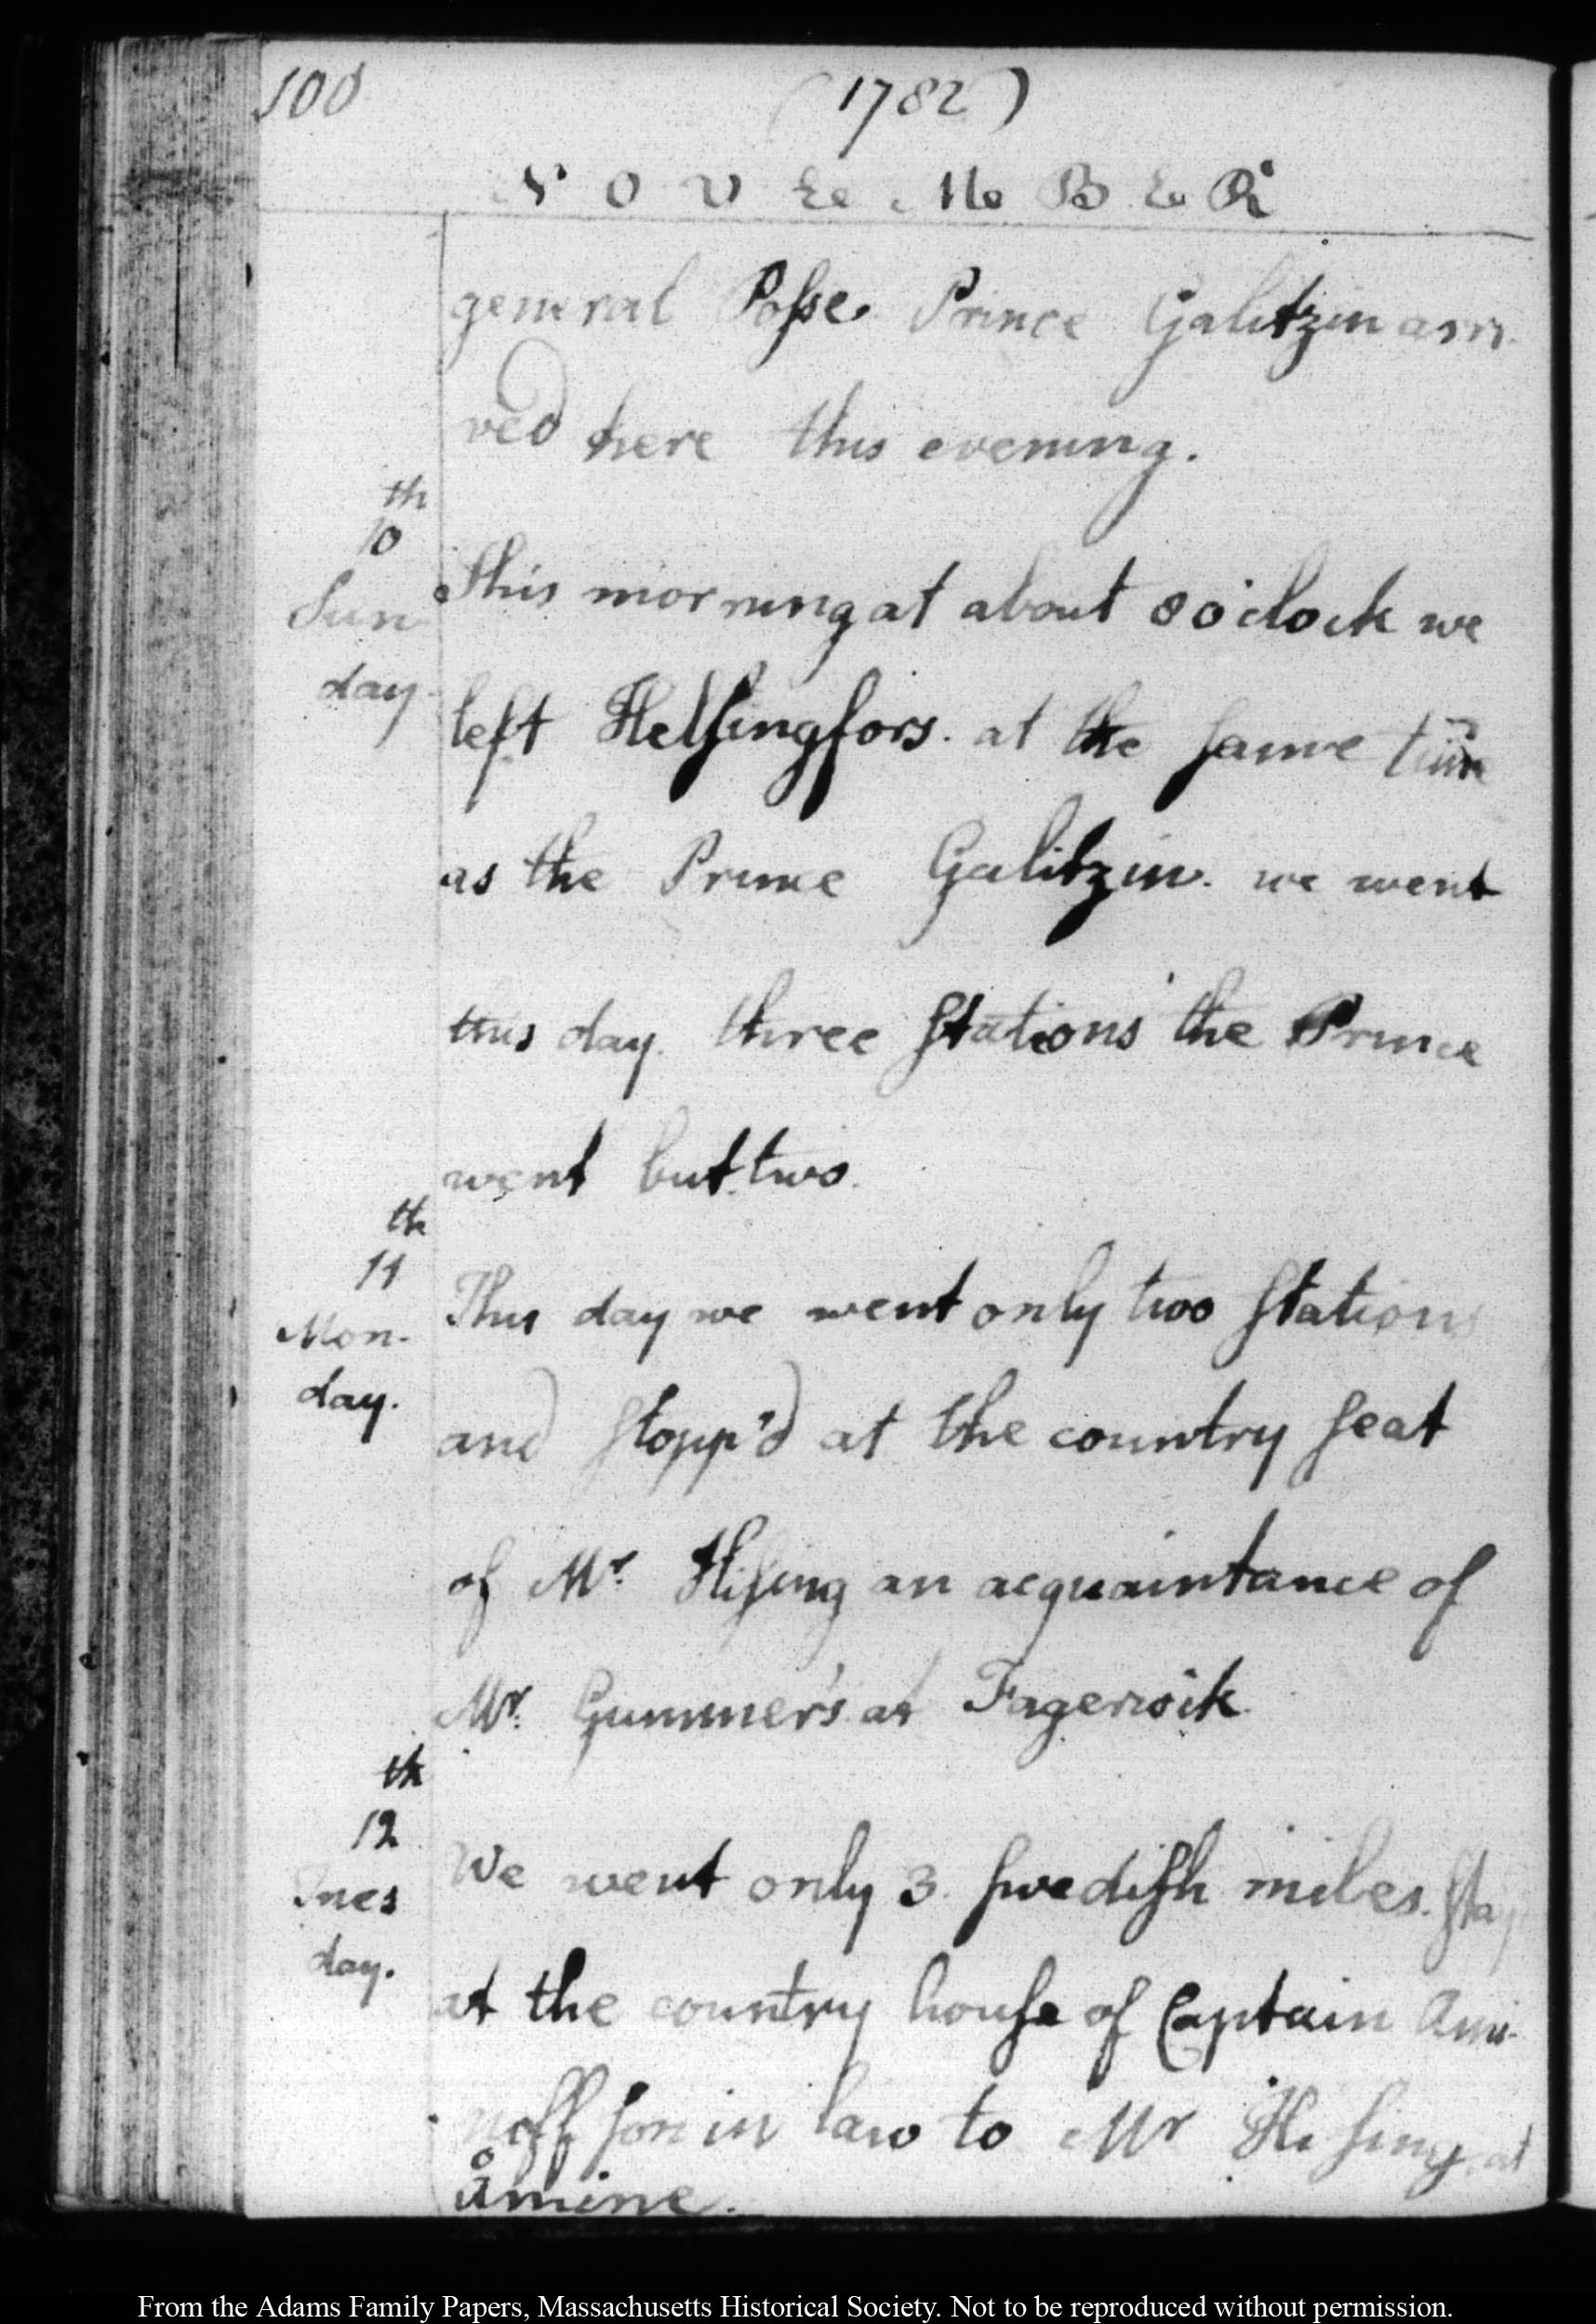 100
(1782)
NOVEMBER
general Posse. Prince Galitzin arri-
ved here this evening.
th
10
Sun
day.
This morning at about 8 o'clock we
left Helsingfors. at the same time
as the Prince Galitzin. we went
this day. three stations the Prince
went but two.
th
11
Mon-
day.
This day we went only two stations
and stopp'd at the country seat
of Mr. Hising an acquaintance of
Mr. Gummer's at Fagerwik
th
12
Tues
day.
We went only 3. swedish miles. stay
at the country house of Captain Ami-
noff son in law to Mr Hising. at
åmine.
From the Adams Family Papers, Massachusetts Historical Society. Not to be reproduced without permission.